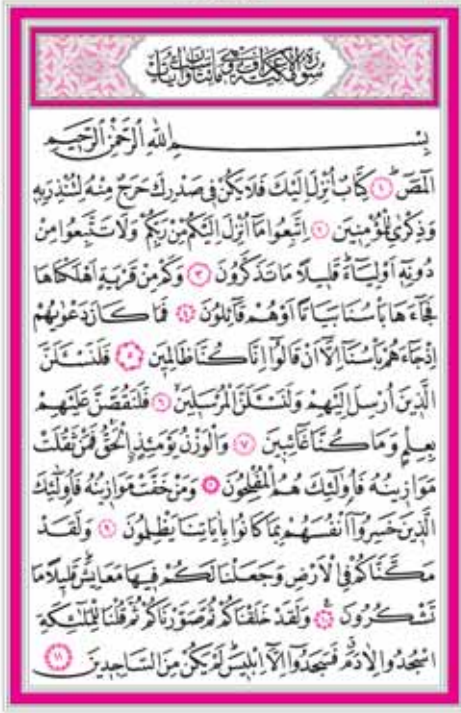 سورة الاعراف مكية وهي مائتان وست ايات
بِسْمِ اللهِ الرَّحْمٰنِ الرَّحٖيمِ
الٓمٓصٓ ﴿١﴾ كِتَابٌ اُنْزِلَ اِلَيْكَ فَلَا يَكُنْ فٖى صَدْرِكَ حَرَجٌ مِنْهُ لِتُنْذِرَ بِهٖ
وَذِكْرٰى لِلْمُؤْمِنٖينَ ﴿٢﴾ اِتَّبِعُوا مَٓا اُنْزِلَ اِلَيْكُمْ مِنْ رَبِّكُمْ وَلَا تَتَّبِعُوا مِنْ
دُونِهٖٓ اَوْلِيَٓاءَ قَلٖيلًا مَا تَذَكَّرُونَ ﴿٣﴾ وَكَمْ مِنْ قَرْيَةٍ اَهْلَكْنَاهَا
فَجَٓاءَهَا بَأْسُنَا بَيَاتًا اَوْ هُمْ قَٓائِلُونَ ﴿٤﴾ فَمَا كَانَ دَعْوٰيهُمْ
اِذْ جَٓاءَهُمْ بَأْسُنَٓا اِلَّٓا اَنْ قَالُٓوا اِنَّا كُنَّا ظَالِمٖينَ ﴿٥﴾ فَلَنَسْـَٔلَنَّ
الَّذٖينَ اُرْسِلَ اِلَيْهِمْ وَلَنَسْـَٔلَنَّ الْمُرْسَلٖينَ ﴿٦﴾ فَلَنَقُصَّنَّ عَلَيْهِمْ
بِعِلْمٍ وَمَا كُنَّا غَٓائِبٖينَ ﴿٧﴾ وَالْوَزْنُ يَوْمَئِذٍ الْحَقُّ فَمَنْ ثَقُلَتْ
مَوَازٖينُهُ فَاُولٰٓئِكَ هُمُ الْمُفْلِحُونَ ﴿٨﴾ وَمَنْ خَفَّتْ مَوَازٖينُهُ فَاُولٰٓئِكَ
الَّذٖينَ خَسِرُٓوا اَنْفُسَهُمْ بِمَا كَانُوا بِاٰيَاتِنَا يَظْلِمُونَ ﴿٩﴾ وَلَقَدْ
مَكَّنَّاكُمْ فِى الْاَرْضِ وَجَعَلْنَا لَكُمْ فٖيهَا مَعَايِشَ قَلٖيلًا مَا
تَشْكُرُونَ ﴿١٠﴾ وَلَقَدْ خَلَقْنَاكُمْ ثُمَّ صَوَّرْنَاكُمْ ثُمَّ قُلْنَا لِلْمَلٰٓئِكَةِ
اسْجُدُوا لِاٰدَمَ فَسَجَدُٓوا اِلَّٓا اِبْلٖيسَ لَمْ يَكُنْ مِنَ السَّاجِدٖينَ ﴿١١﴾